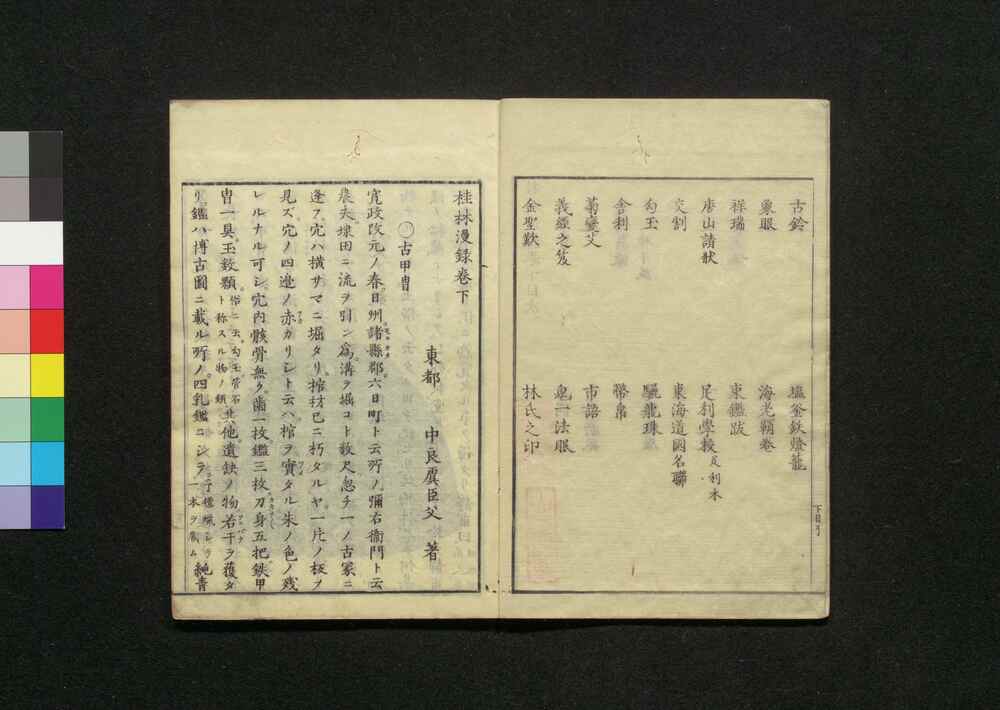 古鈴
象眼
祥瑞
唐山請狀
交割
勾玉
舎利
菊
義經之笈
金聖歎
釜鉄燈籠
海老鞘卷
東鑑跋
足利學校 足利本
東海道國名聯
驪龍珠
幣帛
市語
鬼一法眼
林氏之印
桂林漫録卷下
東都 中良虞臣父 著
○古甲冑
寛政改元ノ春日州諸縣郡六日町ト云所ノ彌右衛門ト云
農夫㙒田ニ流ヲ引ン爲溝ヲ堀コト数尺忽チ一ノ古冢ニ
逢フ穴ハ横サマニ堀タリ棺材已ニ朽タルヤ一片ノ板ヲ
見ズ穴ノ四邊ノ赤カリシト云ハ棺ヲ實タル朱ノ色ノ残
レルナル可シ穴内骸骨無ク歯一枚鑑三枚刀身五把鉄甲
冑一具玉数顆 俗ニ云勾玉管石ト称スル物ノ類 此他遺鈌ノ物若干ヲ獲タ
リ鑑ハ博古圖ニ載ル所ノ四乳鑑ニシテ 一本ヲ 純青